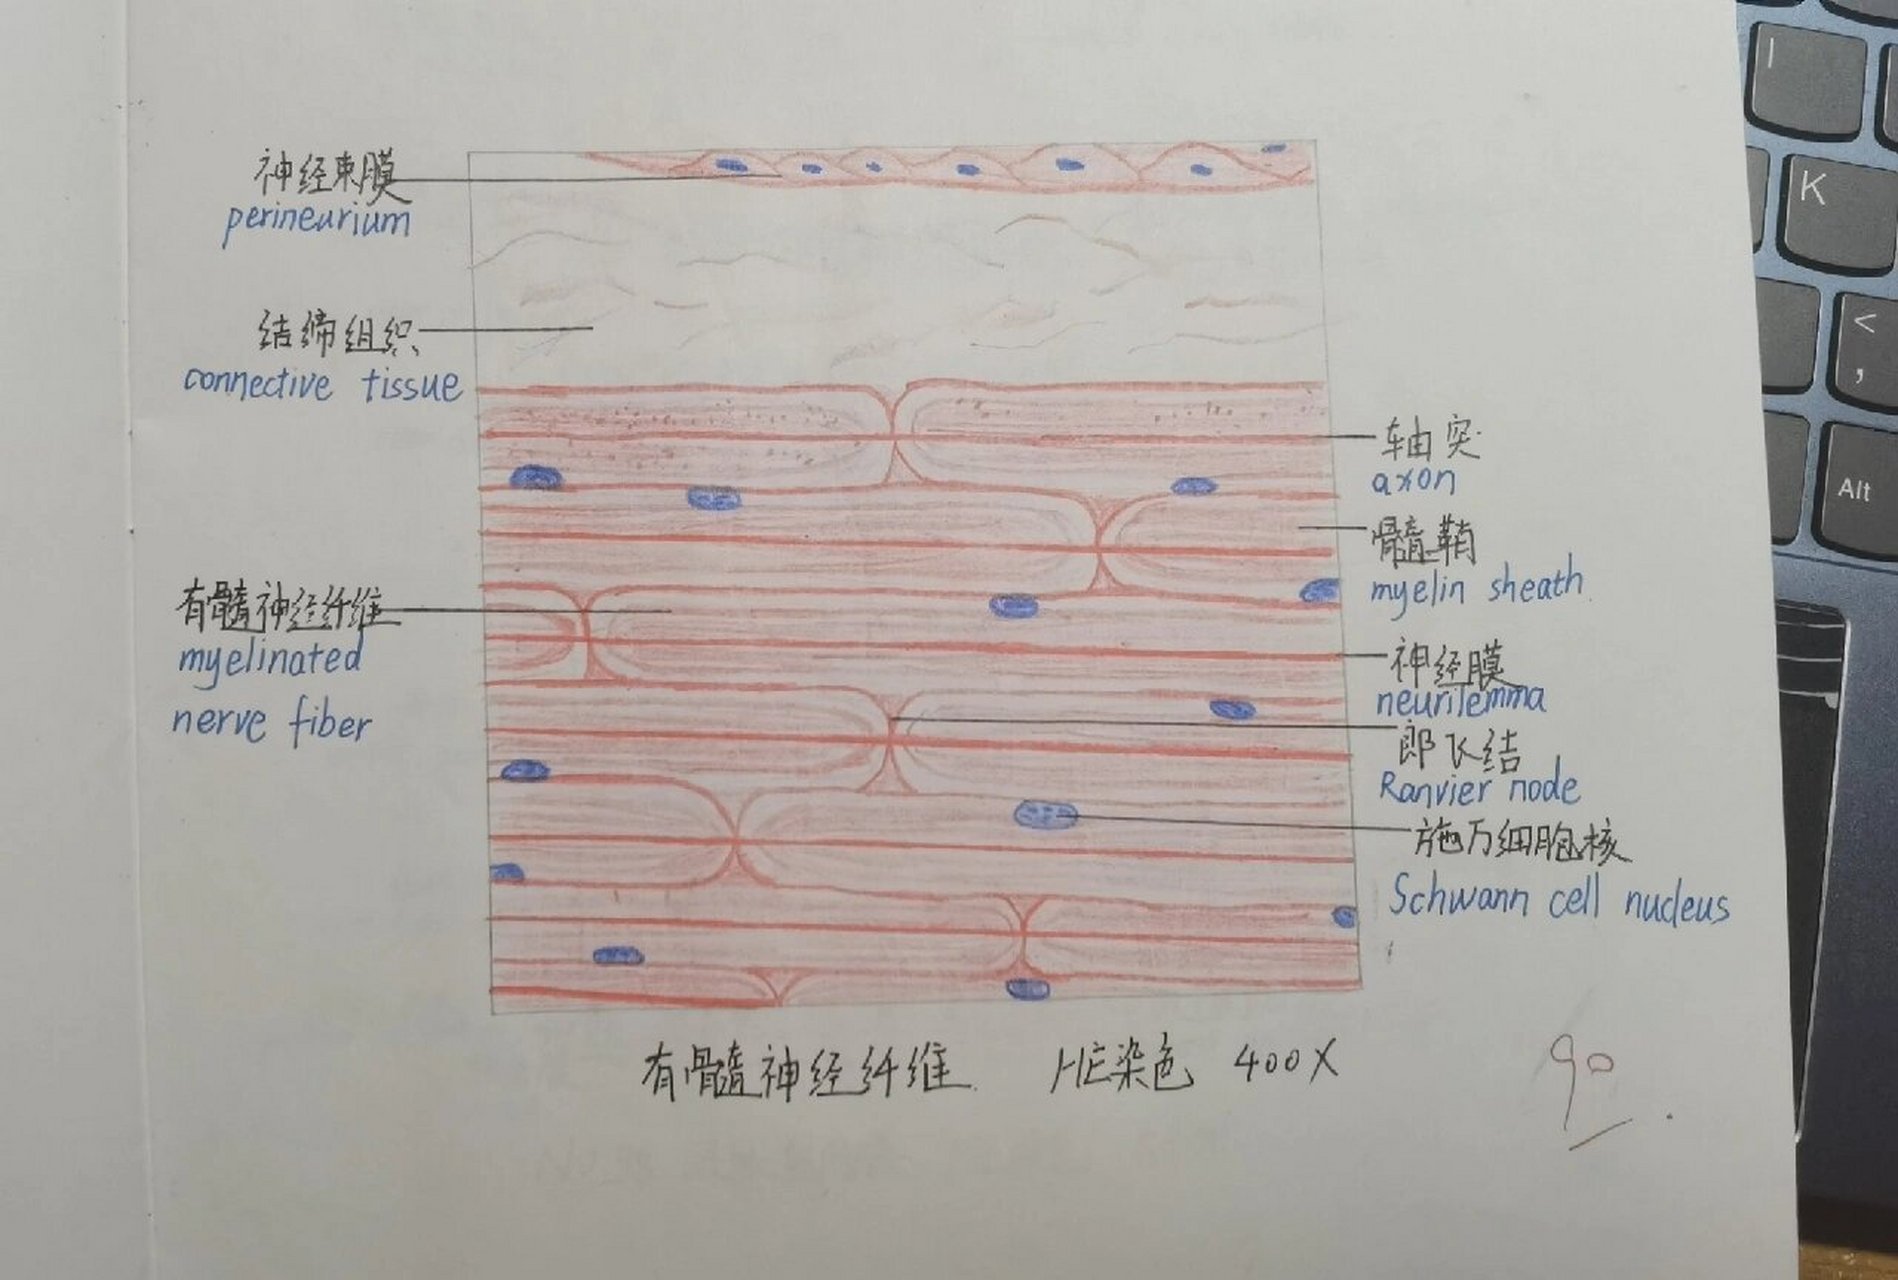 神经束膜
perineurium
结缔组织
connective tissue
有髓神经纤维
myelinated
nerve fiber
轴突
axon
髓鞘
myelin sheath
神经膜
neurilemma
郎飞结
Ranvier node
施万细胞核
Schwann cell nucleus
有髓神经纤维 HE染色 400X
90
I
K
<
,
Alt